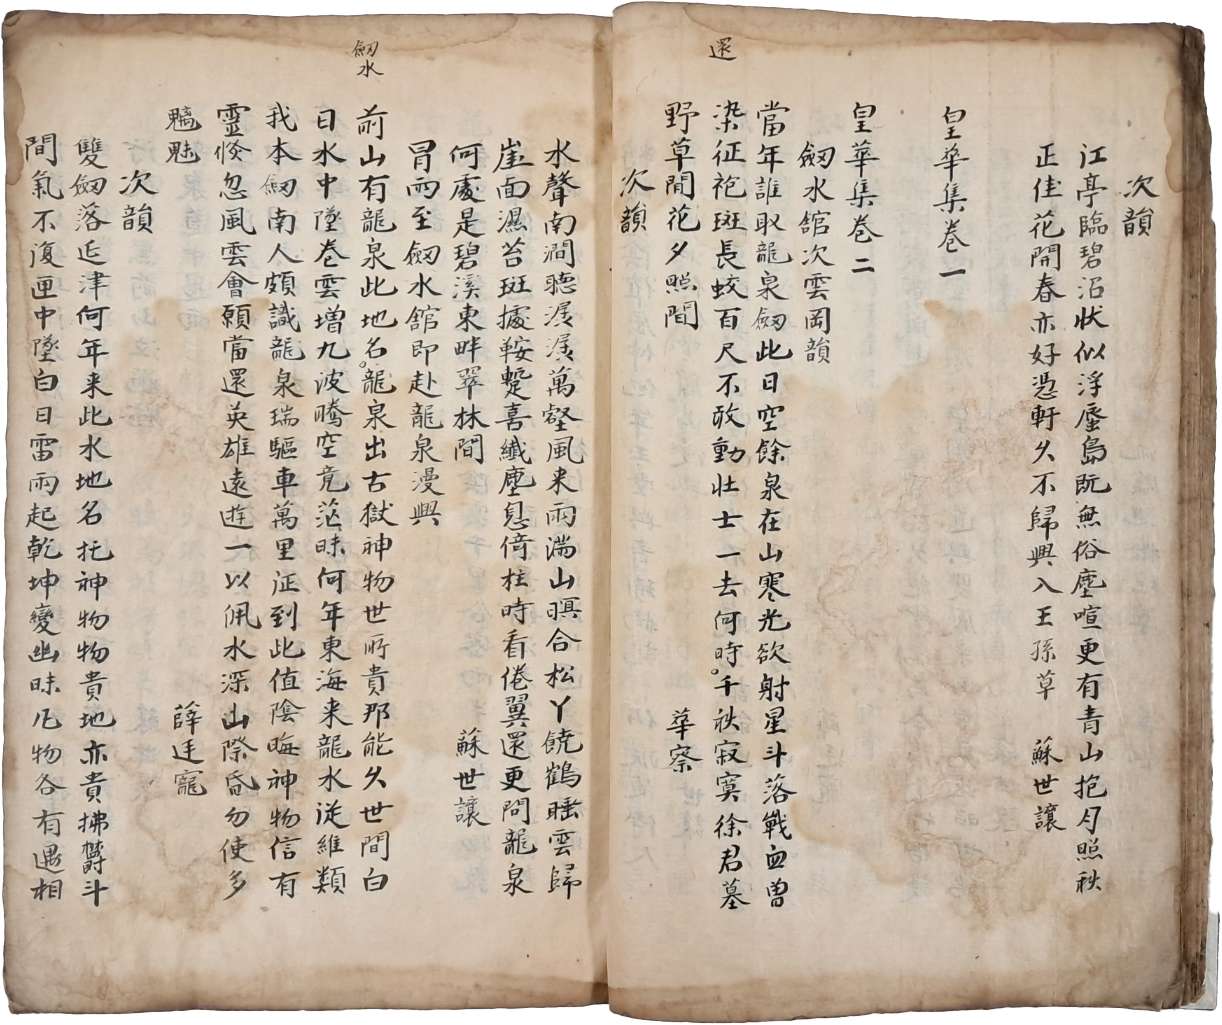 還
次韻
江亭臨碧沼狀似浮蜃島旣無俗塵喧更有青山抱月照秋
正佳花開春亦好憑軒久不歸興入王孫草 蘇世讓
皇華集卷一
皇華集卷二
劒水舘次雲岡韻
當年誰取龍泉劒此日空餘泉在山寒光欲射星斗落戰血曾
染征袍斑長蛟百尺不敢動壯士一去何時千秋寂寞徐君墓
野草閒花夕照間 華察
次韻
劒水
水聲南澗聴潺潺萬壑風来雨湍山暝合松丫饒鶴睡雲歸
崖面濕苔斑據鞍蹔喜纖塵息倚柱時看倦翼還更問龍泉
何處是碧溪東畔翠林間 蘇世讓
冒雨至劒水舘即赴龍泉漫興
前山有龍泉此地名龍泉出古獄神物世所貴那能久世間白
日水中墜巻雲増九波騰空竟茫昧何年東海来龍水従維類
我本劒南人頗識龍泉瑞驅車萬里征到此值陰晦神物信有
靈倐忽風雲會願當還英雄遠遊一以佩水深山際昏勿使多
魑魅 薛廷寵
次韻
雙劒落延津何年来此水地名托神物物貴地亦貴拂欝斗
間氣不復匣中墜白日雷雨起乾坤變幽昧凡物各有遇相